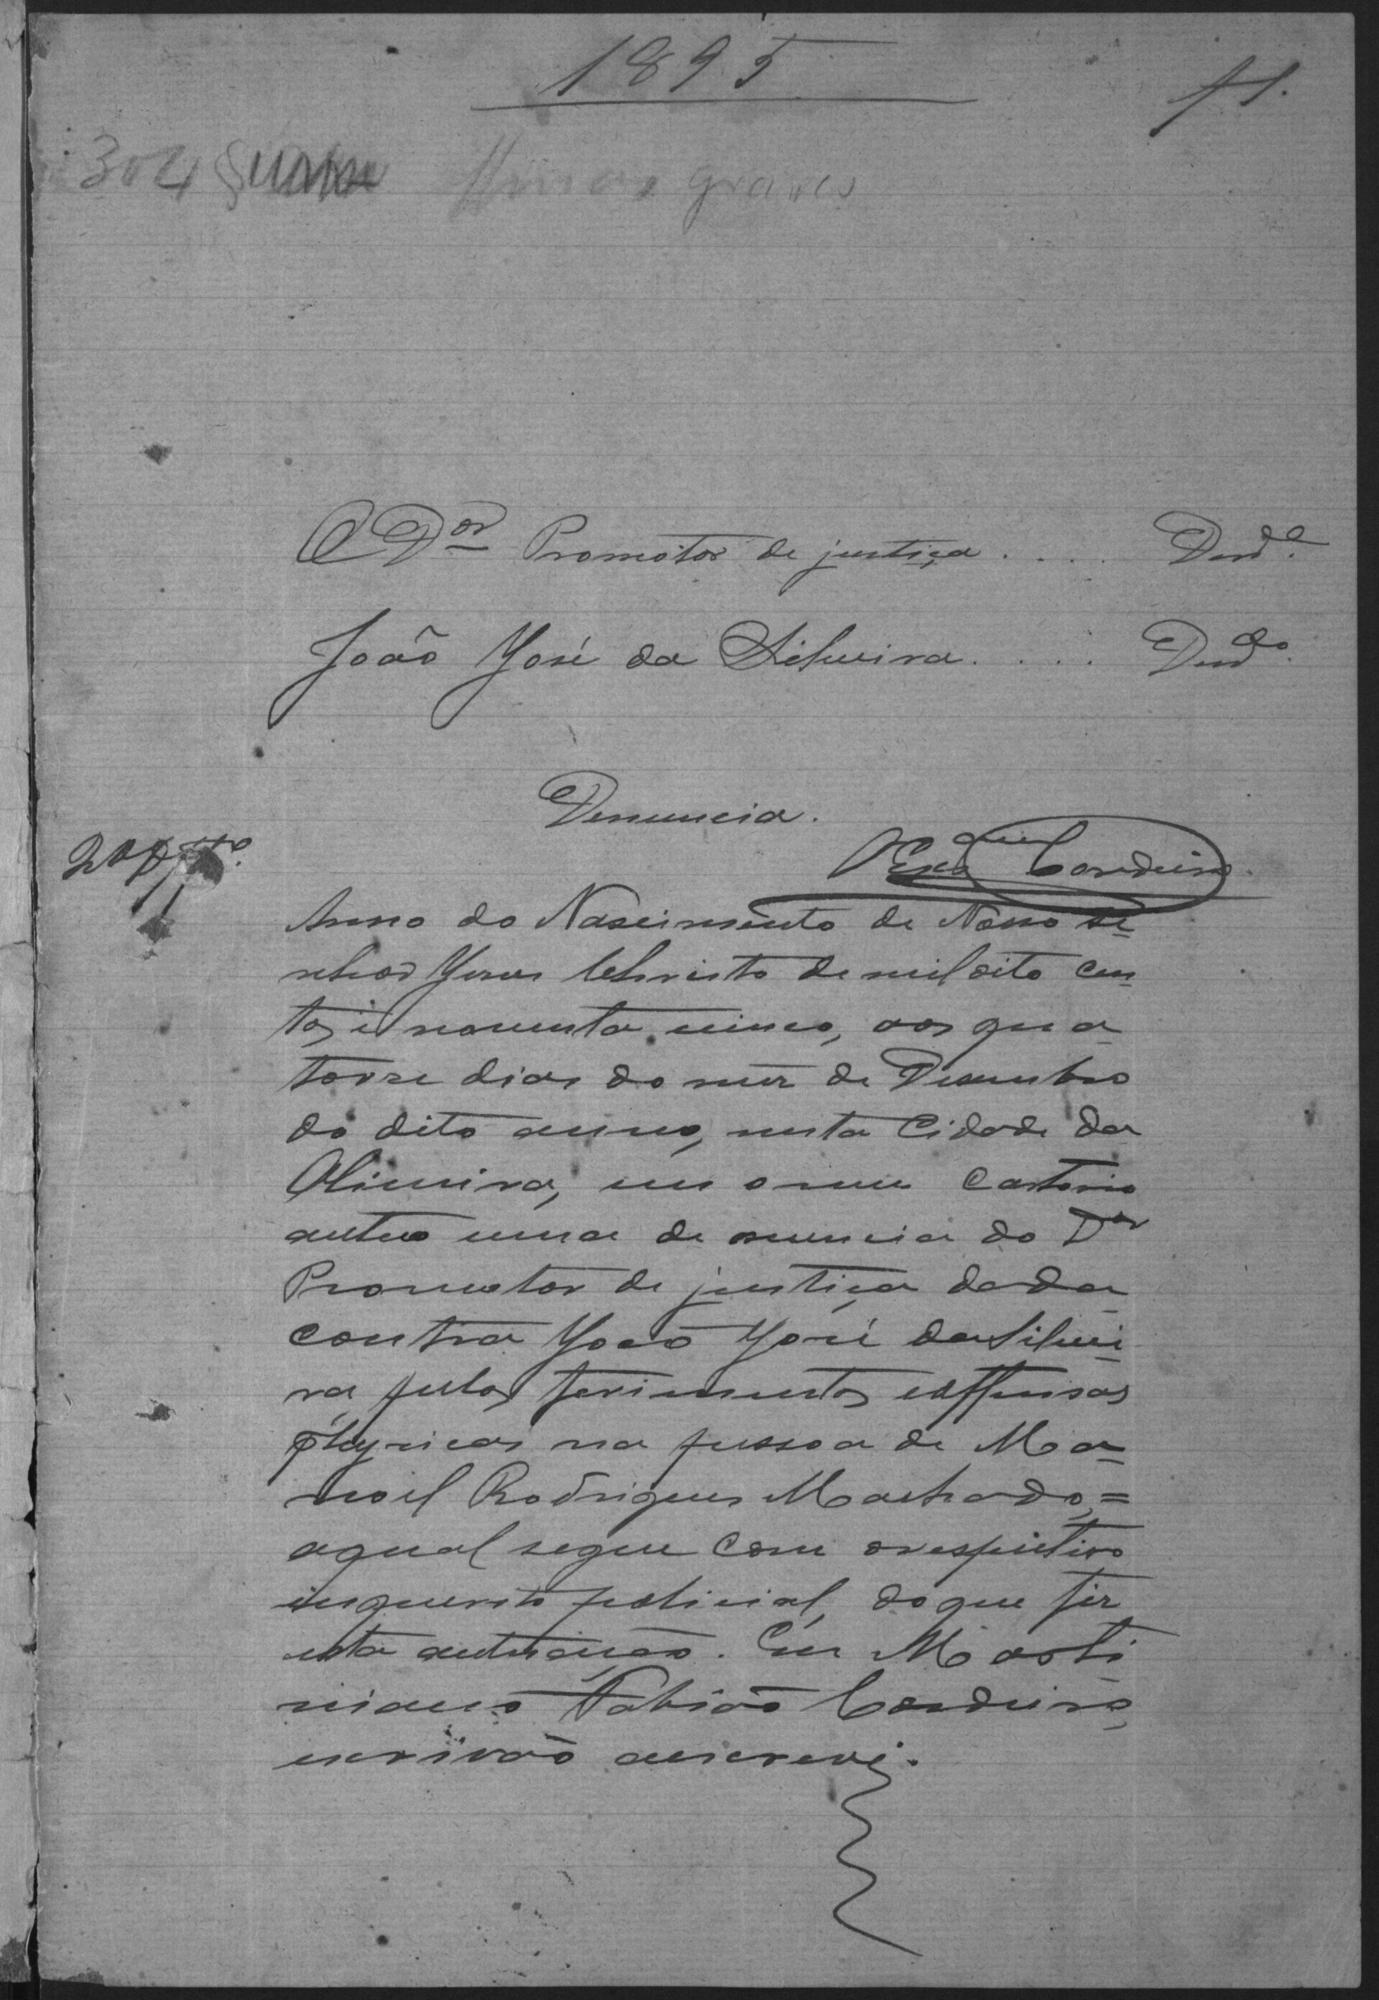 1895
f 1.
304 graves
O Dor Promotor de justiça . . . . Dende.
João José da Silveira . . . . Dendo.
Denuncia.
O Escam Cordeiro
Anno do Nascimento de Nosso Se-
nhor Jesus Christo de mil oito cen-
tos e noventa cinco, aos qua-
torse dias do mez de Desembro
do dito anno, nesta Cidade da
Oliveira, em o meu Cartorio
autuo uma denuncia do Dor
Promotor de justiça dada
contra João José da Silvei-
ra pelos ferimentos e offensas
physicas na pessoa de Ma-
noel Rodrigues Machado, =
a qual segue com o respectivo
inquerito policial, do que fiz
esta autuação. Eu Marti-
niano Fabião Cordeiro,
escrivão a escrevi.